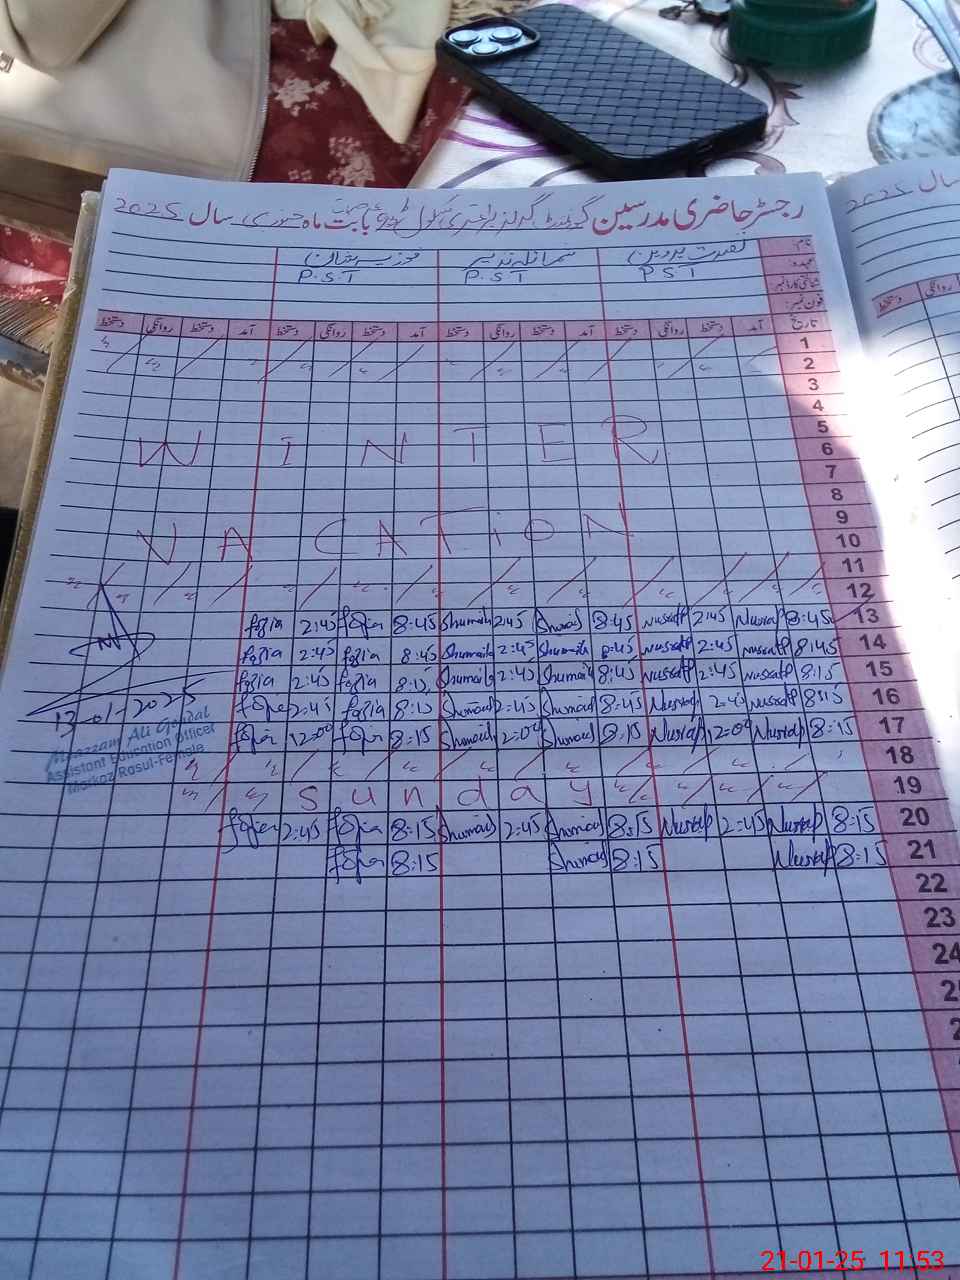 رجسٹر حاضری مدرسین گورنمنٹ گرلز پرائمری سکول بابت ماہ جنوری سال 2025
سال 2025
نام: نصرت پروین شمائلہ نذیر فوزیہ
عہدہ: PST PST P.S.T
شناختی کارڈ نمبر:
فون نمبر:
تاریخ آمد دستخط روانگی دستخط آمد دستخط روانگی دستخط آمد دستخط روانگی دستخط آمد دستخط روانگی دستخط
روانگی دستخط
1
2
3
4
5
WINTER 6
7
8
9
VACATION 10
11
12
fozia 2:45 fozia 8:45 Shumaila 2:45 Shumaila 8:45 Nusrat 2:45 Nusrat 8:45 13
fozia 2:45 fozia 8:45 Shumaila 2:45 Shumaila 8:45 Nusrat 2:45 Nusrat 8:45 14
fozia 2:45 fozia 8:15 Shumaila 2:45 Shumaila 8:45 Nusrat 2:45 Nusrat 8:15 15
fozia 2:45 fozia 8:15 Shumaila 2:45 Shumaila 8:45 Nusrat 2:45 Nusrat 8:15 16
fozia 12:00 fozia 8:15 Shumaila 2:00 Shumaila 8:15 Nusrat 12:00 Nusrat 8:15 17
13-01-2025
Moazzam Ali Gondal
Assistant Education Officer
Markaz Rasul-Female
18
sunday 19
fozia 2:45 fozia 8:15 Shumaila 2:45 Shumaila 8:15 Nusrat 2:45 Nusrat 8:15 20
fozia 8:15 Shumaila 8:15 Nusrat 8:15 21
22
23
24
21-01-25 11:53